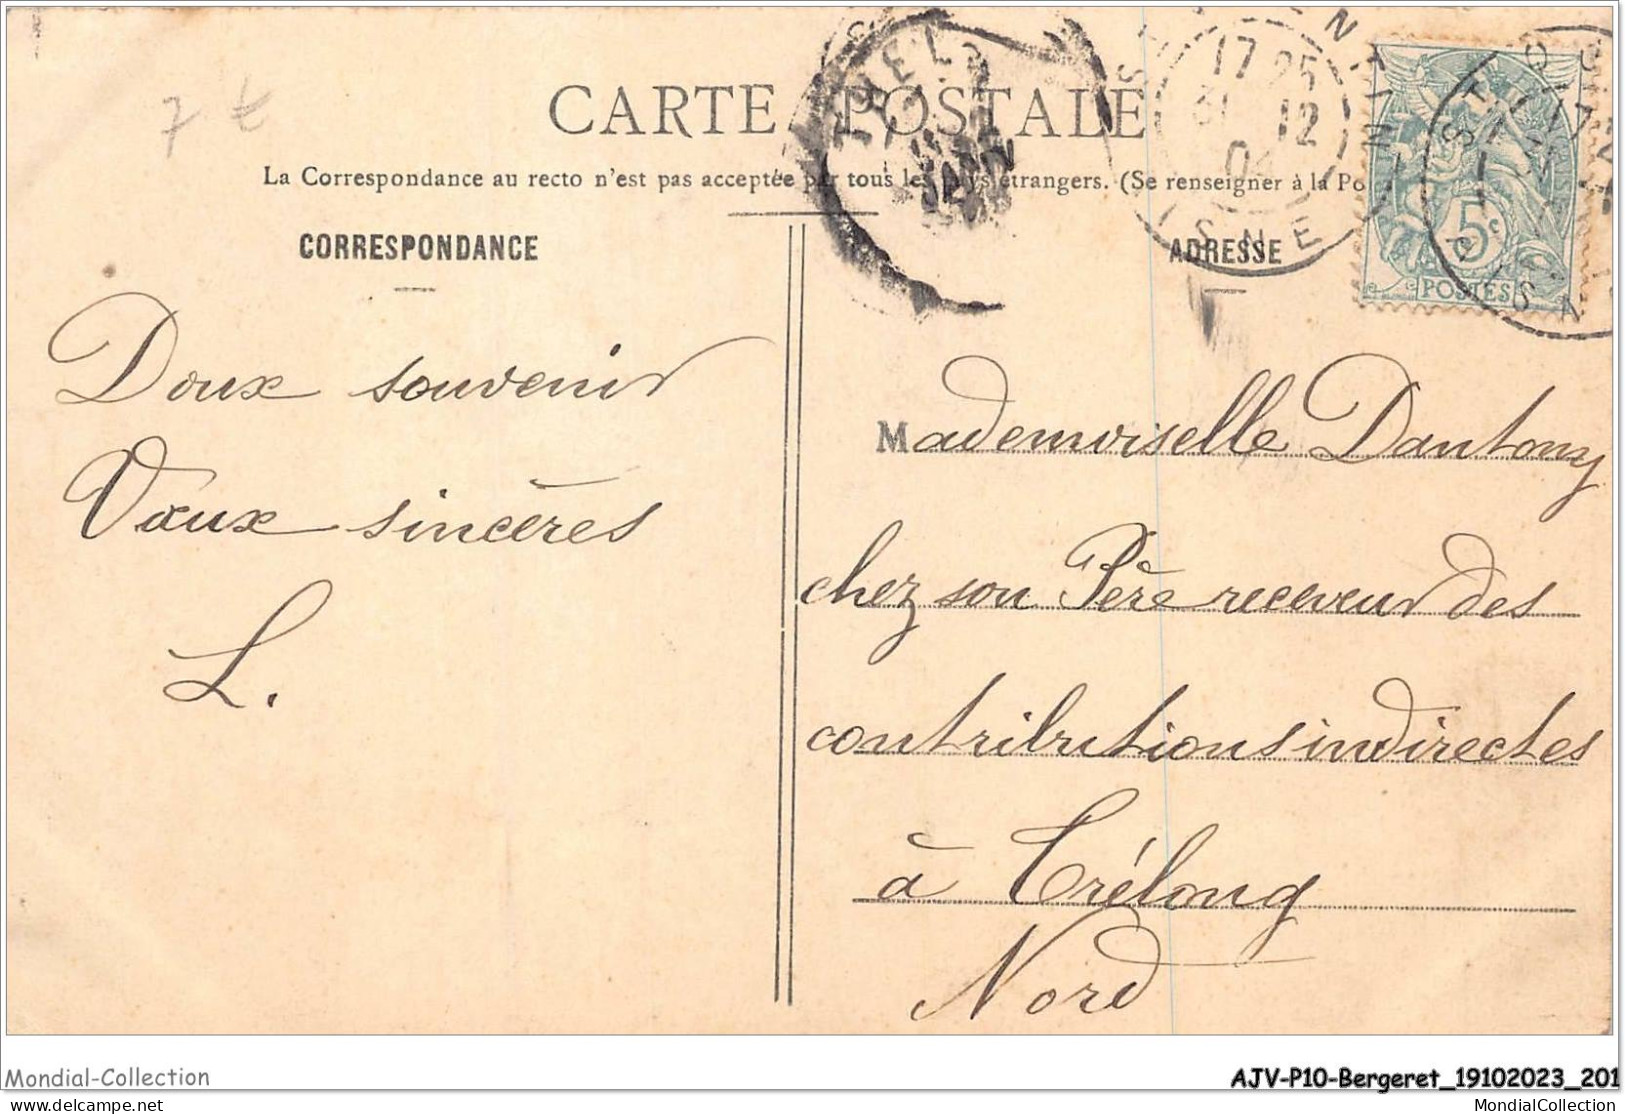 7 €
CARTE POSTALE
La Correspondance au recto n'est pas acceptée par tous les pays étrangers. (Se renseigner à la Po
CORRESPONDANCE
ADRESSE
17 25
31 12
SNE
5c
POSTES
Doux souvenir
Vœux sincères
L.
Mademoiselle Dantony
chez son Père receveur des
contributions indirectes
à Trélong
Nord
Mondial-Collection
AJV-P10-Bergeret_19102023_201
delcampe.net
MondialCollection